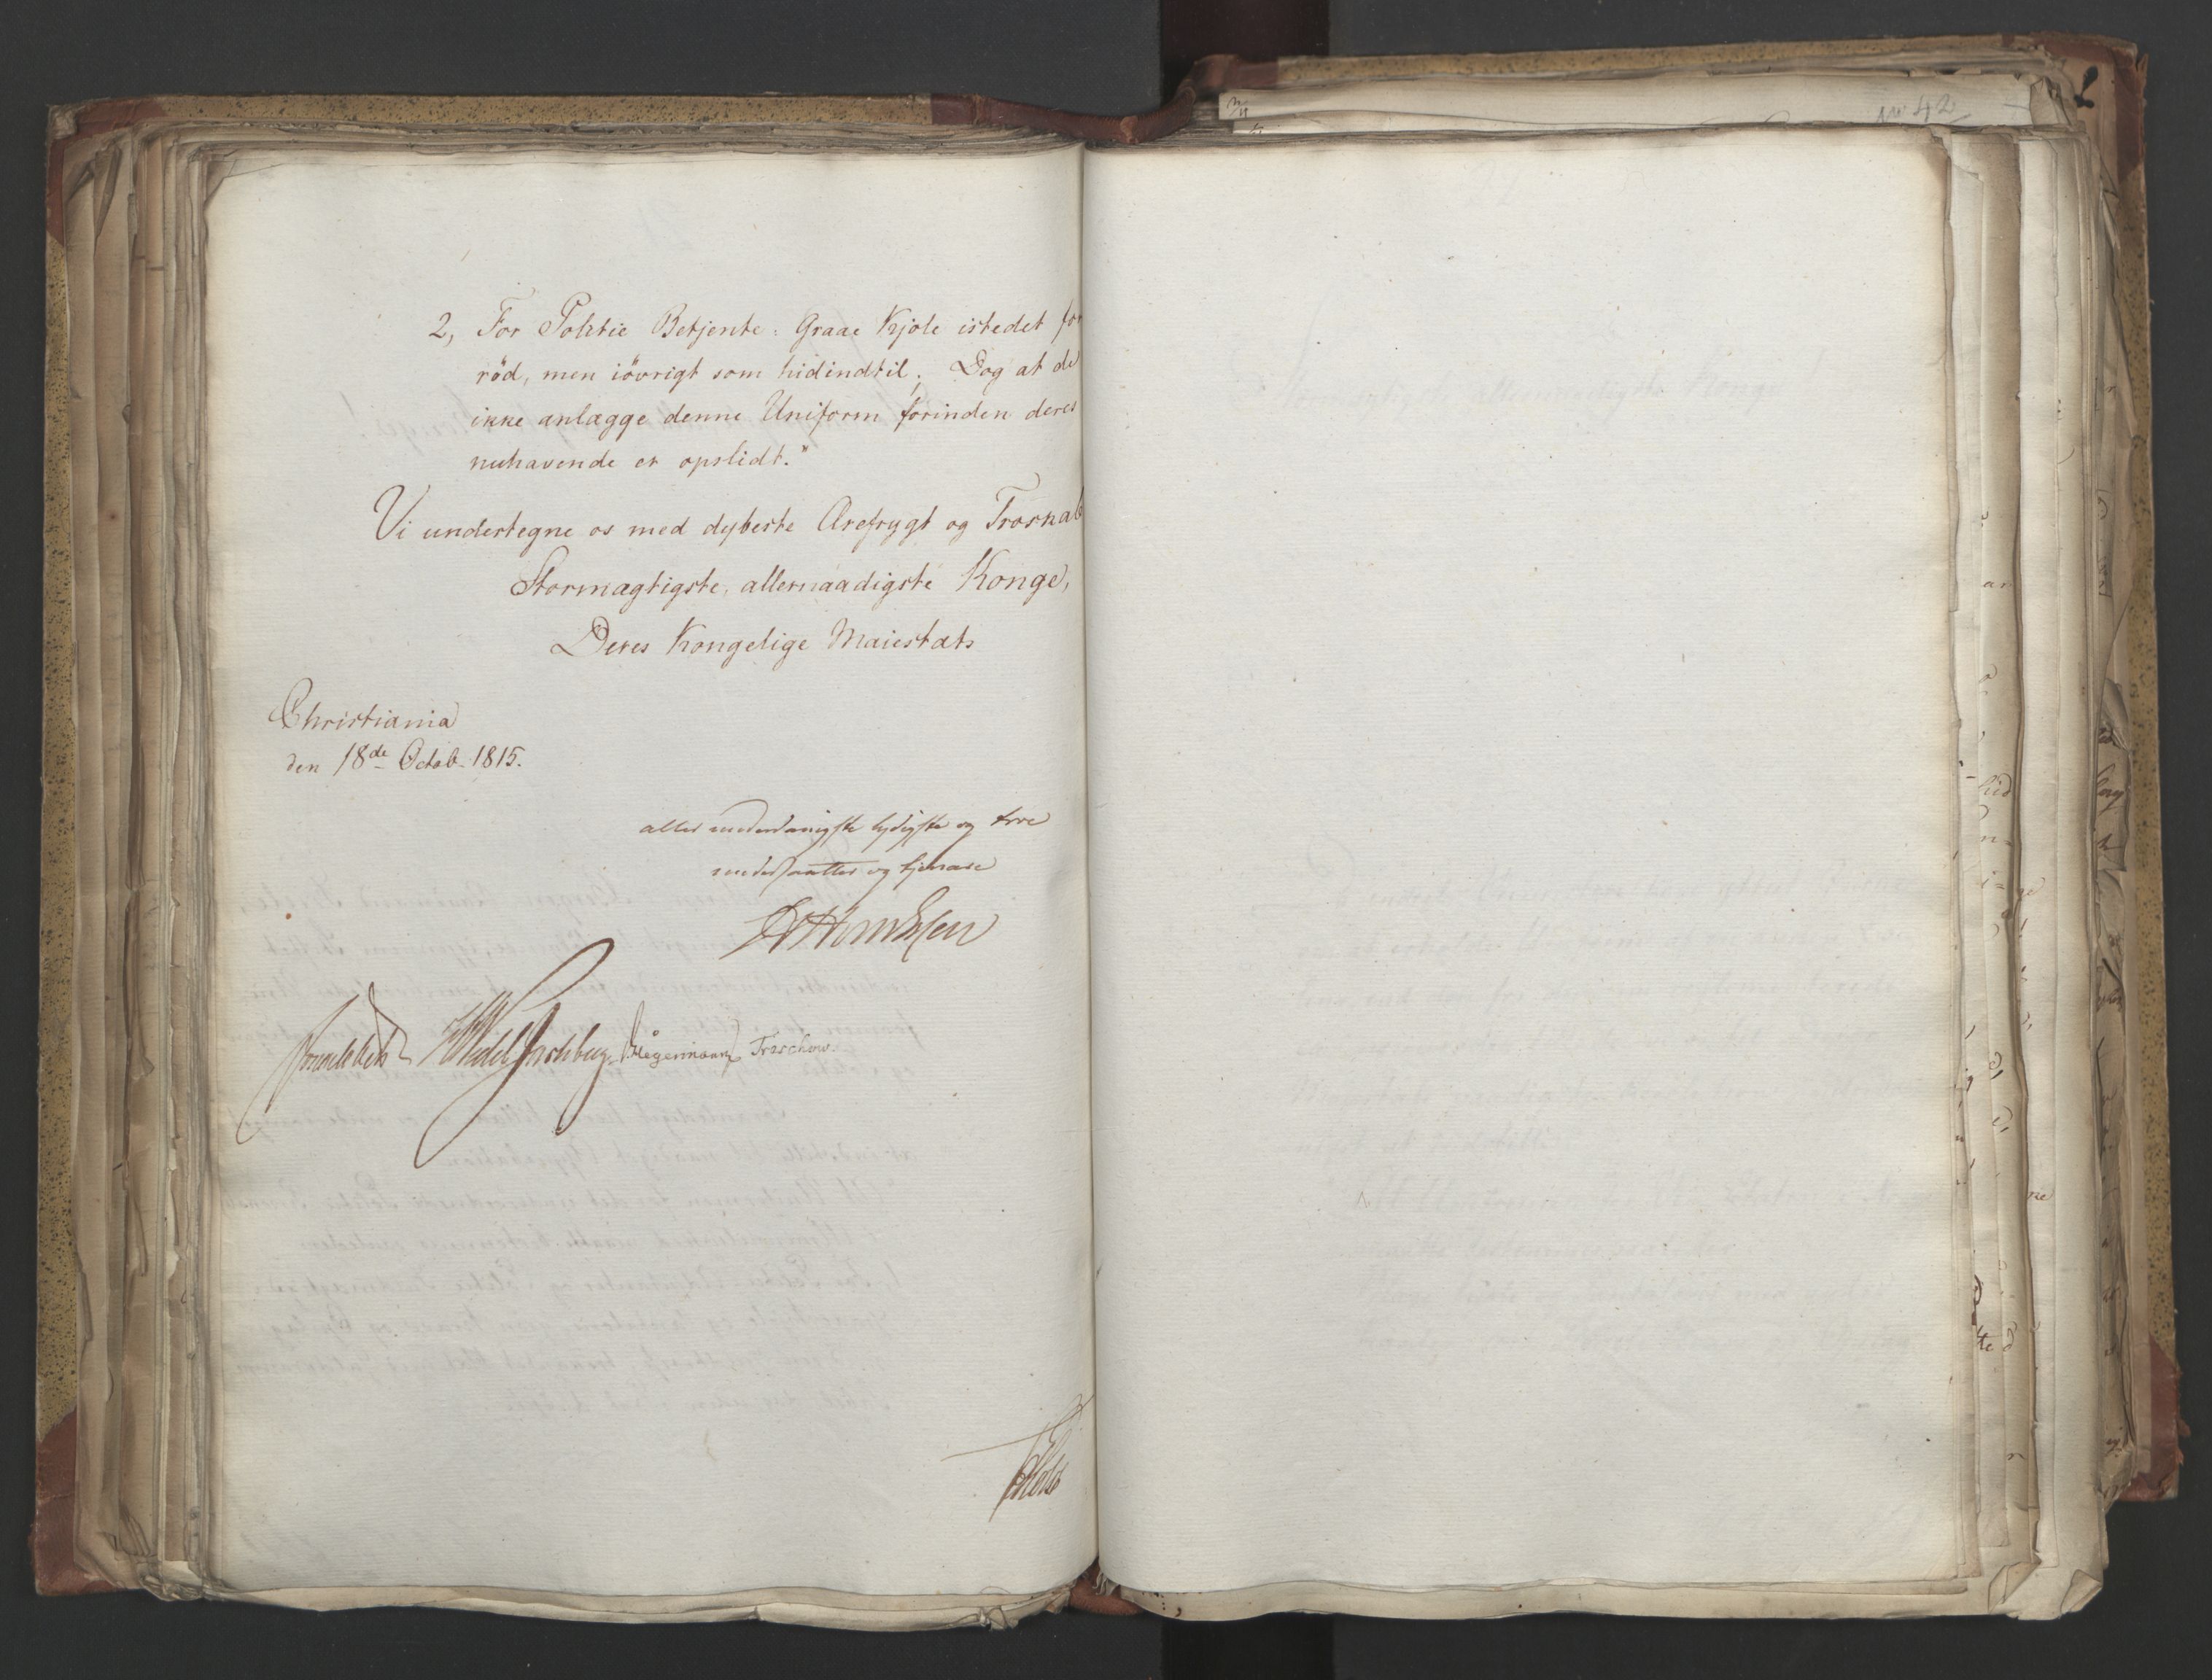 No 42
2, For Politie Betjente: Graae Kjole istedet for
röd, men iövrigt som hidindtil. Dog at de
ikke anlægge denne Uniform forinden deres
nuhavende er opslidt."
Vi undertegne os med dybeste Ærefrygt og Troskab
Stormægtigste, allernaadigste Konge,
Deres Kongelige Maiestæts
Christiania
den 18de Octob. 1815.
allerunderdanigste lydigste og troe
undersaatter og tjenere
Sommerhielm Wedel Jarlsberg Hegermann Treschow
Holst